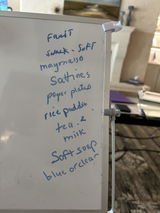 Fruit
snack - soft
mayonaiso
Saltines
paper plates
rice puddin
tea. 2
milk
Soft soap
blue or clear